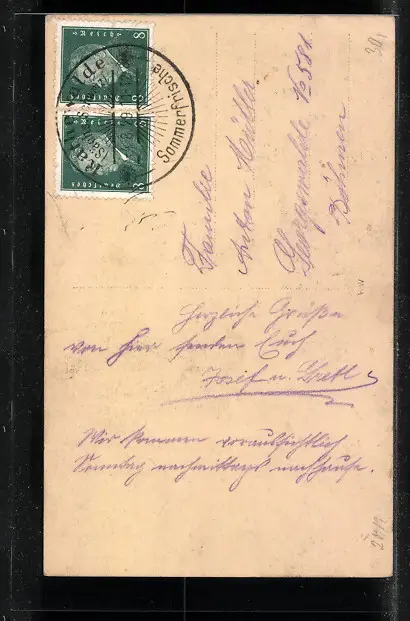 8
Deutsches Reich
8
8
Deutsches Reich
8
Sommerfrische
Familie
Anton Müller
Georgswalde No 581
Böhmen
Herzliche Grüße
von hier senden Euch
Josef u. Gretl
Wir kommen voraussichtlich
Sonntag nachmittags nachhause.